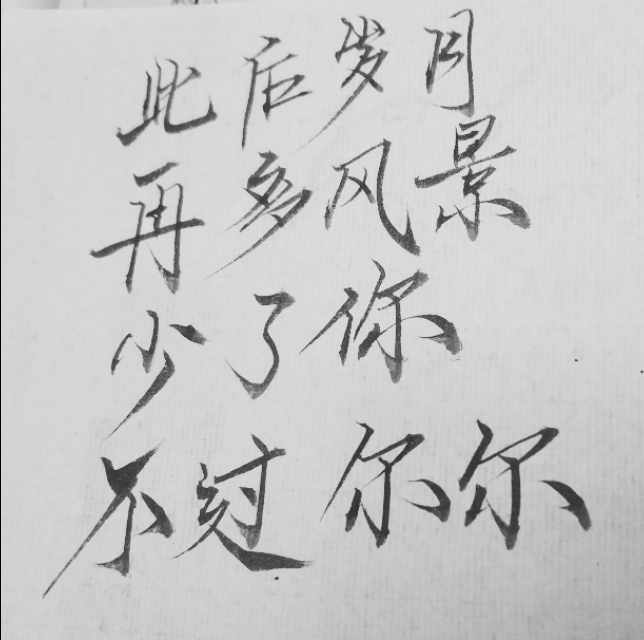 此后岁月
再多风景
少了你
不过尔尔